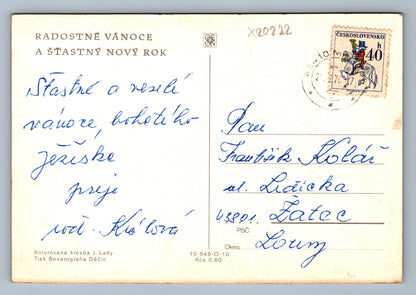 RADOSTNÉ VÁNOCE
A ŠŤASTNÝ NOVÝ ROK
X20222
ČESKOSLOVENSKO
40 h
Šťastné a veselé
vánoce, bohatého
ježíška
přeje
rod. Králová
Pan
František Kolář
ul. Lidická
43801 Žatec
PSČ
Okres Louny
Kolorovaná kresba J. Lady
Tisk Severografia Děčín
10-548-O-10
Kčs 0,60